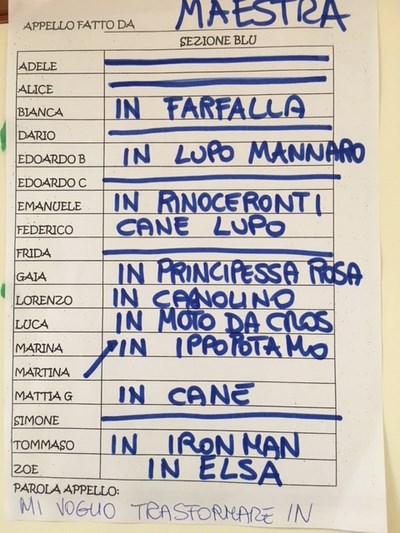 APPELLO FATTO DA MAESTRA
SEZIONE BLU
ADELE
ALICE
BIANCA IN FARFALLA
DARIO
EDOARDO B IN LUPO MANNARO
EDOARDO C
EMANUELE IN RINOCERONTI
FEDERICO CANE LUPO
FRIDA
GAIA IN PRINCIPESSA ROSA
LORENZO IN CAGNOLINO
LUCA IN MOTO DA CROS
MARINA IN IPPOPOTAMO
MARTINA
MATTIA G IN CANE
SIMONE
TOMMASO IN IRON MAN
ZOE IN ELSA
PAROLA APPELLO:
MI VOGLIO TRASFORMARE IN